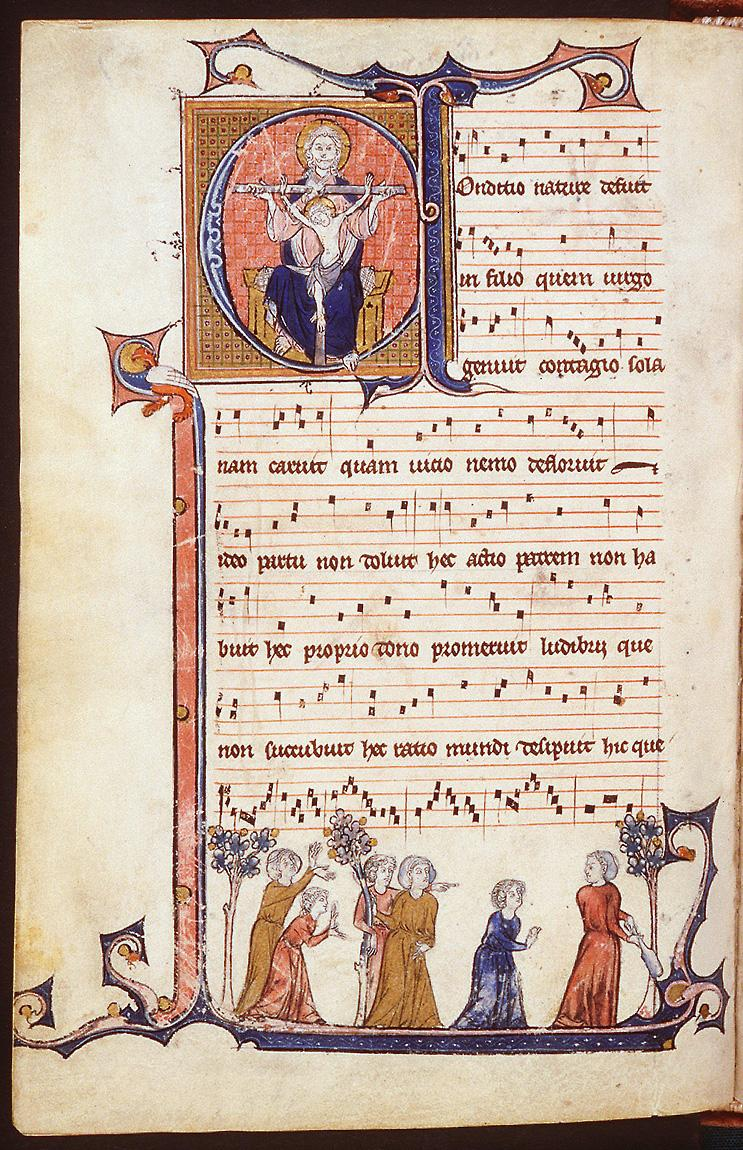 Conditio nature defuit
in filio quem uirgo
genuit contagio sola
nam caruit quam uicio nemo defloruit
ideo partu non doluit hec actio patrem non ha
buit hec proprio dono promeruit ludibrii que
non succubuit hec ratio mundi desipuit hic que